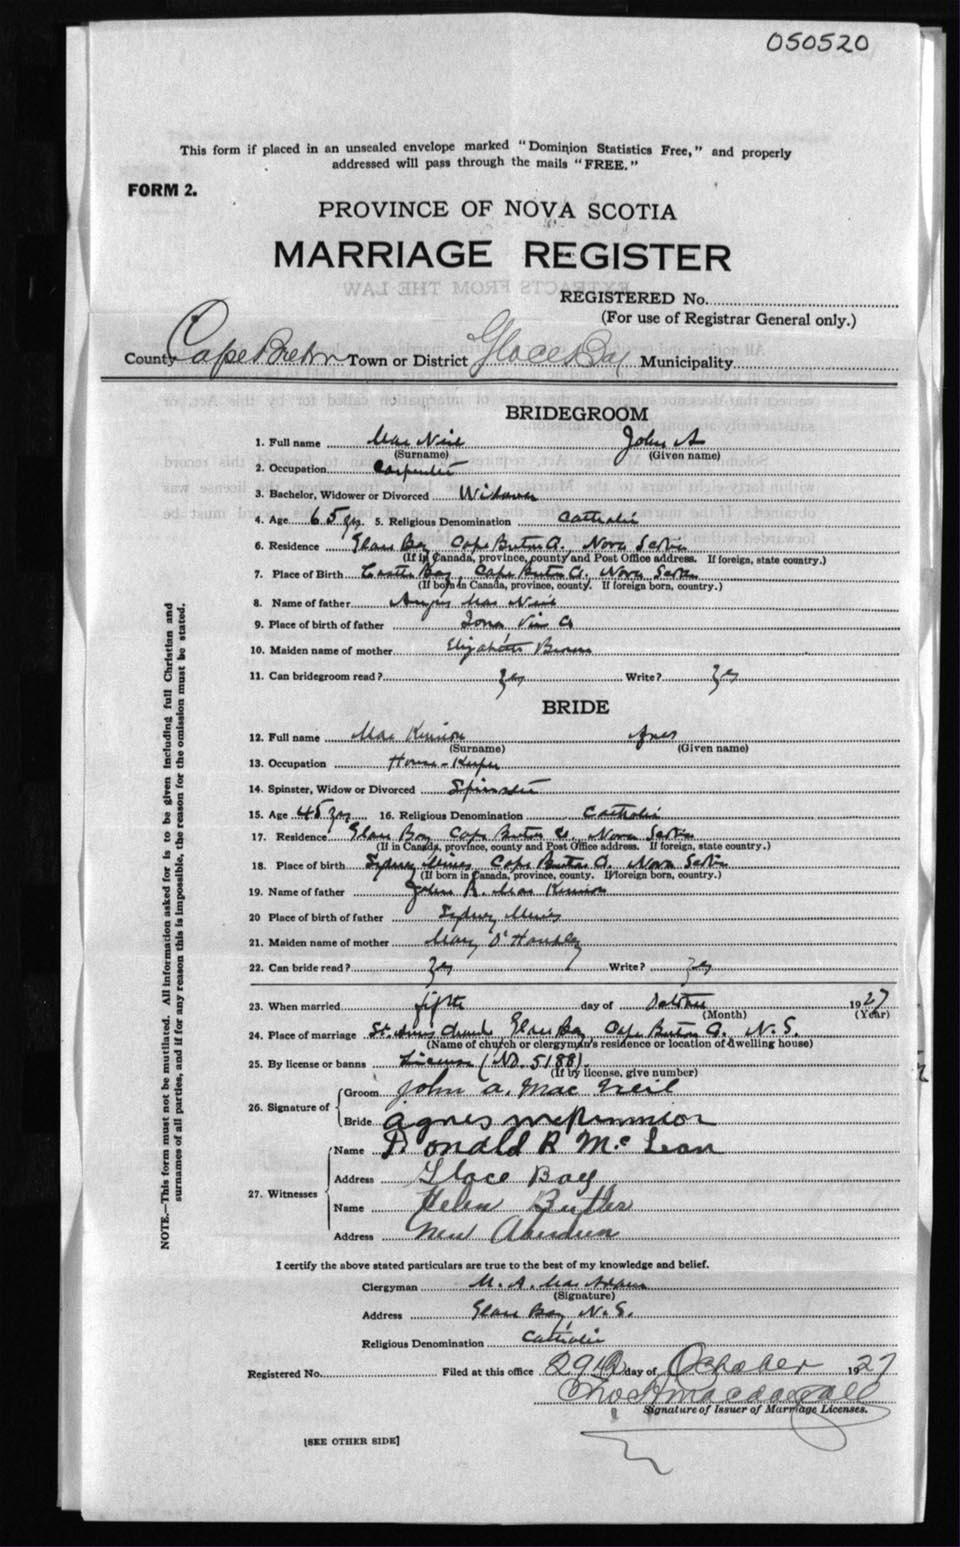 050520
This form if placed in an unsealed envelope marked "Dominion Statistics Free," and properly
addressed will pass through the mails "FREE."
FORM 2.
PROVINCE OF NOVA SCOTIA
MARRIAGE REGISTER
REGISTERED No.
(For use of Registrar General only.)
County Cape Breton Town or District Glace Bay Municipality
BRIDEGROOM
1. Full name Mac Neil John A
(Surname) (Given name)
2. Occupation Carpenter
3. Bachelor, Widower or Divorced Widower
4. Age 65 yrs. 5. Religious Denomination Catholic
6. Residence Glace Bay Cape Breton Co. Nova Scotia
(If in Canada, province, county and Post Office address. If foreign, state country.)
7. Place of Birth Bay, Cape Breton Co. Nova Scotia
(If born in Canada, province, county. If foreign born, country.)
8. Name of father Angus Mac Neil
9. Place of birth of father Iona Vic Co
10. Maiden name of mother Elizabeth
11. Can bridegroom read? Yes Write? Yes
BRIDE
12. Full name Mac Kinnon Agnes
(Surname) (Given name)
13. Occupation House-Keeper
14. Spinster, Widow or Divorced Spinster
15. Age 45 yrs 16. Religious Denomination Catholic
17. Residence Glace Bay Cape Breton Co. Nova Scotia
(If in Canada, province, county and Post Office address. If foreign, state country.)
18. Place of birth Sydney Mines Cape Breton Co. Nova Scotia
(If born in Canada, province, county. If foreign born, country.)
19. Name of father John R. Mac Kinnon
20 Place of birth of father Sydney Mines
21. Maiden name of mother Mary
22. Can bride read? Yes Write? Yes
23. When married fifth day of October 1927
(Month) (Year)
24. Place of marriage St. Anns Church Glace Bay Cape Breton Co. N. S.
(Name of church or clergyman's residence or location of dwelling house)
25. By license or banns License (No. 5188).
(If by license, give number)
26. Signature of Groom John A. Mac Neil
Bride Agnes McKinnion
27. Witnesses Name Donald R McLean
Address Glace Bay
Name Helen Butler
Address New Aberdeen
I certify the above stated particulars are true to the best of my knowledge and belief.
Clergyman M. A. Mac Adam
(Signature)
Address Glace Bay N. S.
Religious Denomination Catholic
Registered No. Filed at this office 29th day of October 1927
Signature of Issuer of Marriage Licenses.
[SEE OTHER SIDE]
NOTE.—This form must not be mutilated. All information asked for is to be given including full Christian and
surnames of all parties, and if for any reason this is impossible, the reason for the omission must be stated.